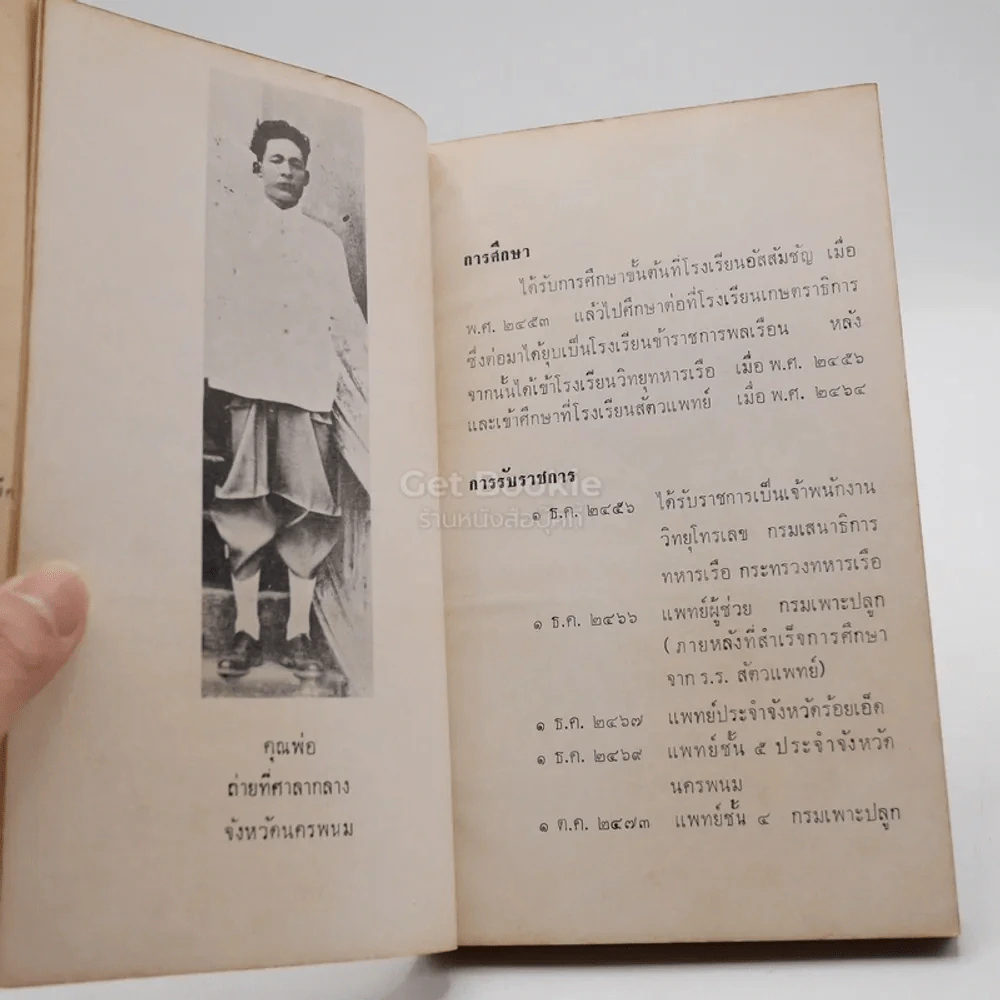 คุณพ่อ
ถ่ายที่ศาลากลาง
จังหวัดนครพนม
การศึกษา
ได้รับการศึกษาขั้นต้นที่โรงเรียนอัสสัมชัญ เมื่อ
พ.ศ. ๒๔๕๓ แล้วไปศึกษาต่อที่โรงเรียนเกษตราธิการ
ซึ่งต่อมาได้ยุบเป็นโรงเรียนข้าราชการพลเรือน หลัง
จากนั้นได้เข้าโรงเรียนวิทยุทหารเรือ เมื่อ พ.ศ. ๒๔๕๖
และเข้าศึกษาที่โรงเรียนสัตวแพทย์ เมื่อ พ.ศ. ๒๔๖๔
การรับราชการ
๑ ธ.ค. ๒๔๕๖ ได้รับราชการเป็นเจ้าพนักงาน
วิทยุโทรเลข กรมเสนาธิการ
ทหารเรือ กระทรวงทหารเรือ
๑ ธ.ค. ๒๔๖๖ แพทย์ผู้ช่วย กรมเพาะปลูก
(ภายหลังที่สำเร็จการศึกษา
จาก ร.ร. สัตวแพทย์)
๑ ธ.ค. ๒๔๖๗ แพทย์ประจำจังหวัดร้อยเอ็ด
๑ ธ.ค. ๒๔๖๙ แพทย์ชั้น ๕ ประจำจังหวัด
นครพนม
๑ ต.ค. ๒๔๗๓ แพทย์ชั้น ๔ กรมเพาะปลูก
Get Bookie
ร้านหนังสือบุ๊คกี้